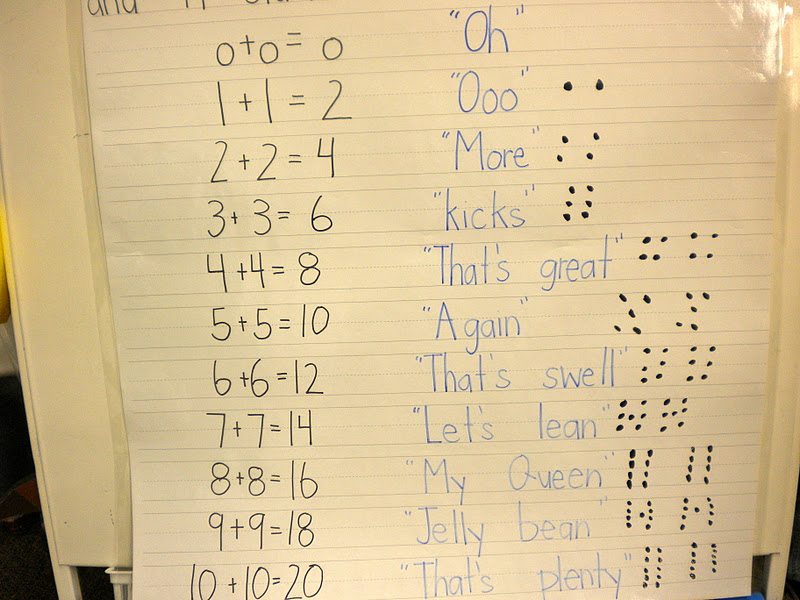 and
0+0=0 "Oh"
1+1=2 "Ooo"
2+2=4 "More"
3+3=6 "kicks"
4+4=8 "That's great"
5+5=10 "Again"
6+6=12 "That's swell"
7+7=14 "Let's lean"
8+8=16 "My Queen"
9+9=18 "Jelly bean"
10+10=20 "That's plenty"